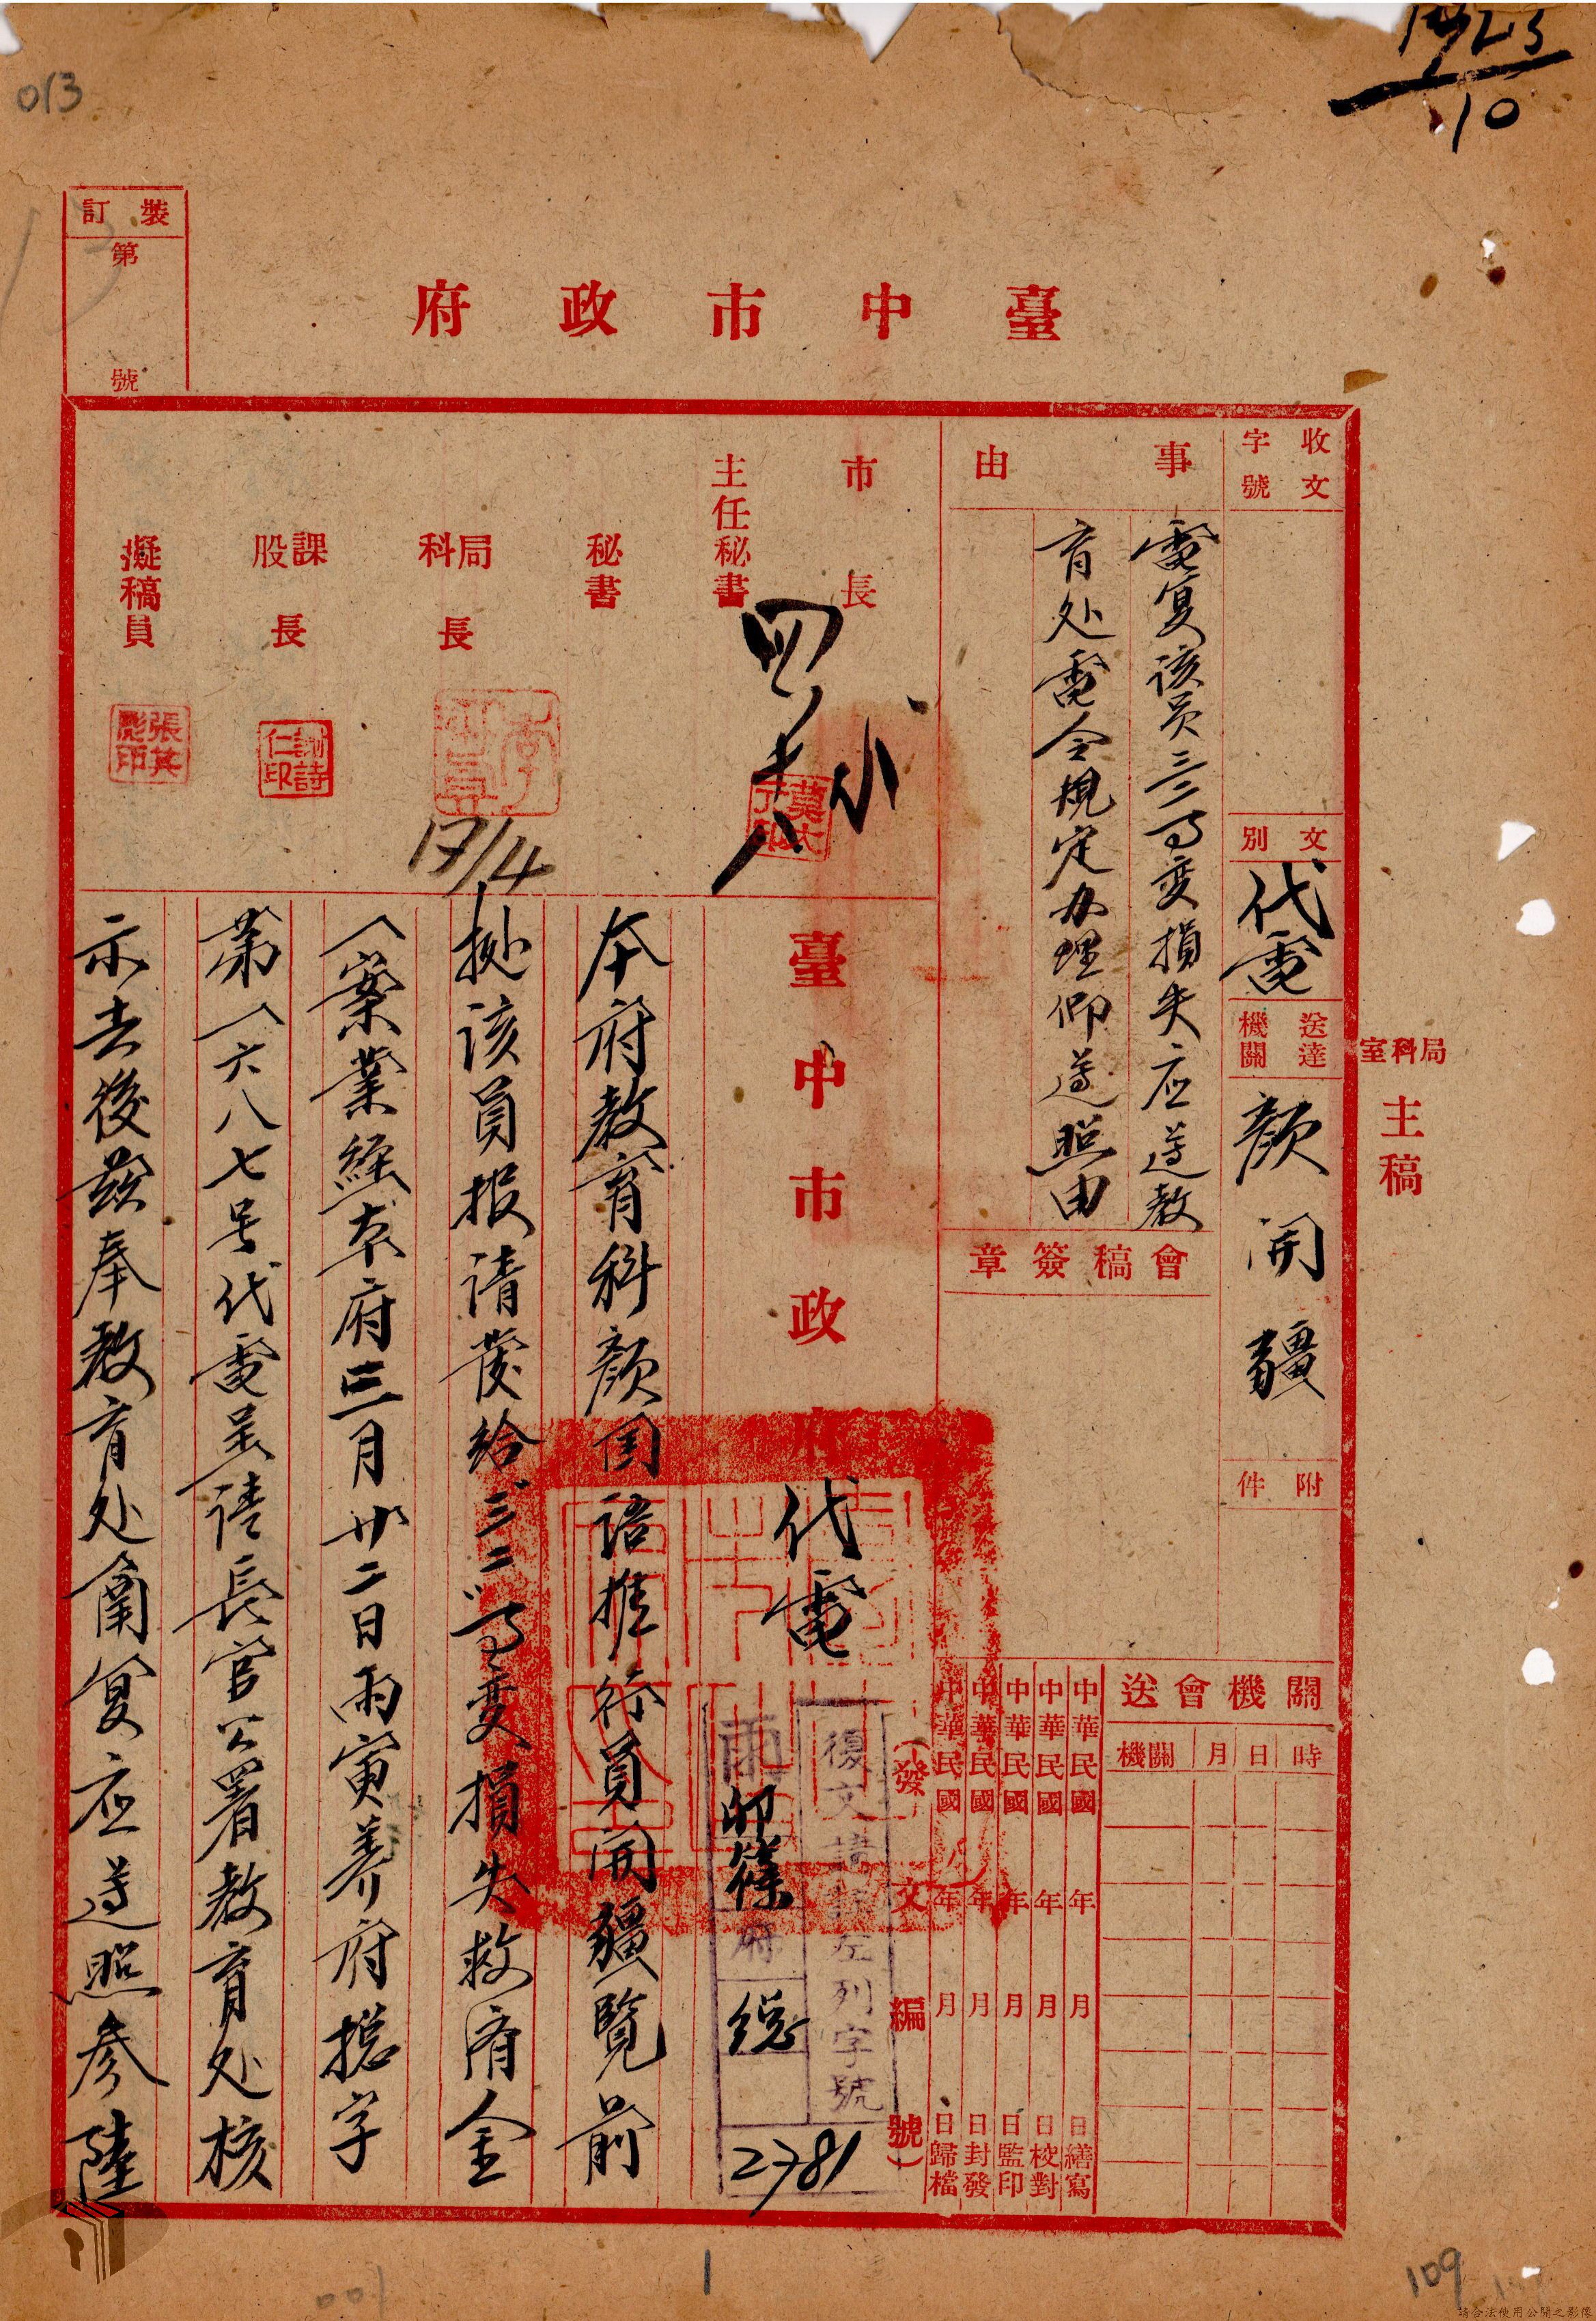 013
1923
10
裝訂
第
號
臺中市政府
收文
字號
文別
代電
送達
機關
顏開疆
附件
局科室
主稿
事由
電复該員三二八事变損失应遵教
育处電令規定办理仰遵照由
會稿簽章
關機會送
時
日
月
機關
中華民國 年 月 日繕寫
中華民國 年 月 日校對
中華民國 年 月 日監印
中華民國 年 月 日封發
中華民國 年 月 日歸檔
(發文編號)
市長
主任秘書
秘書
局科長
17/4
課股長
擬稿員
張其彪印
臺中市政府代電
復文請敘左列字號
雨
卯篠
府
總
2781
本府教育科顏国語推行員開疆覽前
据該員报請發給"三二"事变損失救済金
一案業經本府三月廿二日雨寅养府総字
第一六八七号代電呈請長官公署教育处核
示去後茲奉教育处南复应遵照参陸
1
001
109
請合法使用公開之影像